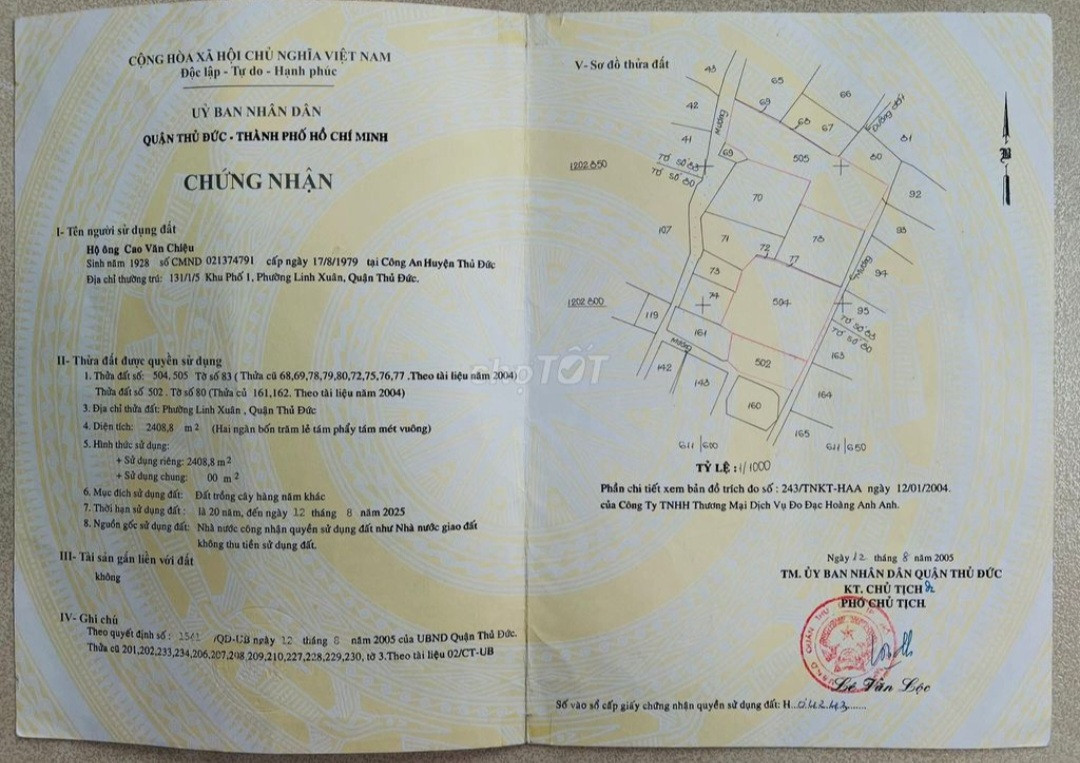 CỘNG HÒA XÃ HỘI CHỦ NGHĨA VIỆT NAM
Độc lập - Tự do - Hạnh phúc
UỶ BAN NHÂN DÂN
QUẬN THỦ ĐỨC - THÀNH PHỐ HỒ CHÍ MINH
CHỨNG NHẬN
I- Tên người sử dụng đất
Hộ ông Cao Văn Chiệu
Sinh năm 1928 số CMND 021374791 cấp ngày 17/8/1979 tại Công An Huyện Thủ Đức
Địa chỉ thường trú: 131/1/5 Khu Phố 1, Phường Linh Xuân, Quận Thủ Đức.
II- Thửa đất được quyền sử dụng
1. Thửa đất số: 504, 505 Tờ số 83 ( Thửa cũ 68,69,78,79,80,72,75,76,77 .Theo tài liệu năm 2004)
Thửa đất số 502 . Tờ số 80 (Thửa củ 161,162. Theo tài liệu năm 2004)
3. Địa chỉ thửa đất: Phường Linh Xuân , Quận Thủ Đức
4. Diện tích: 2408,8 m2 (Hai ngãn bốn trăm lẻ tám phẩy tám mét vuông)
5. Hình thức sử dụng:
+ Sử dụng riêng: 2408,8 m2
+ Sử dụng chung: 00 m2
6. Mục đích sử dụng đất: Đất trồng cây hàng năm khác
7. Thời hạn sử dụng đất : là 20 năm, đến ngày 12 tháng 8 năm 2025
8. Nguồn gốc sử dụng đất: Nhà nước công nhận quyền sử dụng đất như Nhà nước giao đất
không thu tiền sử dụng đất.
III- Tài sản gắn liền với đất
không
IV- Ghi chú
Theo quyết định số : 1561 /QĐ-UB ngày 12 tháng 8 năm 2005 của UBND Quận Thủ Đức.
Thửa cũ 201,202,233,234,206,207,208,209,210,227,228,229,230, tờ 3.Theo tài liệu 02/CT-UB
V- Sơ đồ thửa đất
43
65
66
42
69
68
67
Đường
Mương
41
81
69
505
80
1202 850
Tờ số 83
Tờ số 80
70
92
107
71
72
78
93
77
73
Mương
94
74
504
1202 800
119
95
161
Tờ số 83
Tờ số 80
Mương
502
163
142
143
164
160
165
611 | 600
611 | 650
TỶ LỆ : 1/1000
Phần chi tiết xem bản đồ trích do số : 243/TNKT-HAA ngày 12/01/2004.
của Công Ty TNHH Thương Mại Dịch Vụ Đo Đạc Hoàng Anh Anh.
Ngày 12 tháng 8 năm 2005
TM. ỦY BAN NHÂN DÂN QUẬN THỦ ĐỨC
KT. CHỦ TỊCH
PHÓ CHỦ TỊCH
Lê Văn Lộc
Số vào sổ cấp giấy chứng nhận quyền sử dụng đất: H...04243......
chợTỐT